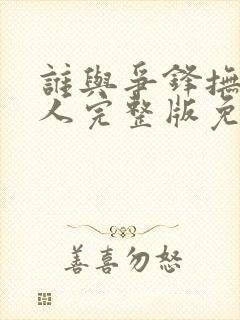 誰與爭鋒撫
人完整版免
善喜勿怒